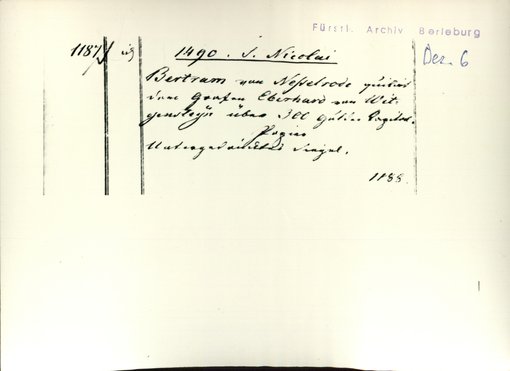 Fürstl. Archiv Berleburg
Dez. 6
1187
1490. S. Nicolai
Bertram von Nesselrode quitirt
dem Grafen Eberhard von Wit-
gensteyn über 300 Gulden
Papier
Untergedrücktes Siegel.
1188.